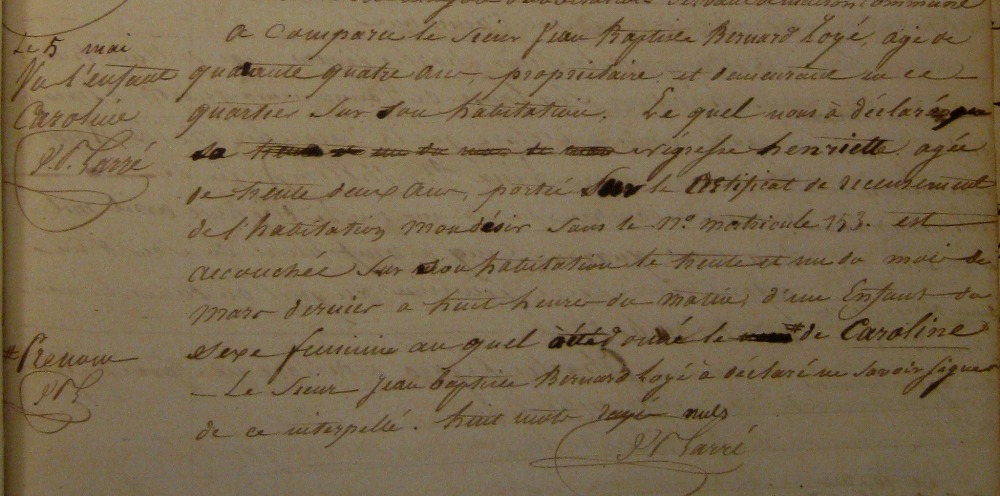 maison commune
Le 5 mai
Vu l'enfant
Caroline
P.V. Larré
a comparu le sieur Jean Baptiste Bernard Loyé, agé de
quarante quatre ans, propriétaire et demeurant en ce
quartier sur son habitation. Le quel nous à déclaré que
sa négresse henriette agée
de trente deux ans, portée sur le Certificat de recensement
de l'habitation mondésir sous le No. matricule 153. est
accouchée sur son habitation le trente et un du mois de
mars dernier a huit heures du matin, d'un Enfant du
sexe feminin au quel a été donné le # de Caroline
# Prenom
P.V.L
— Le Sieur Jean baptiste Bernard Loyé à déclaré ne savoir signer
de ce interpellé. huit mots rayés nuls
P.V. Larré